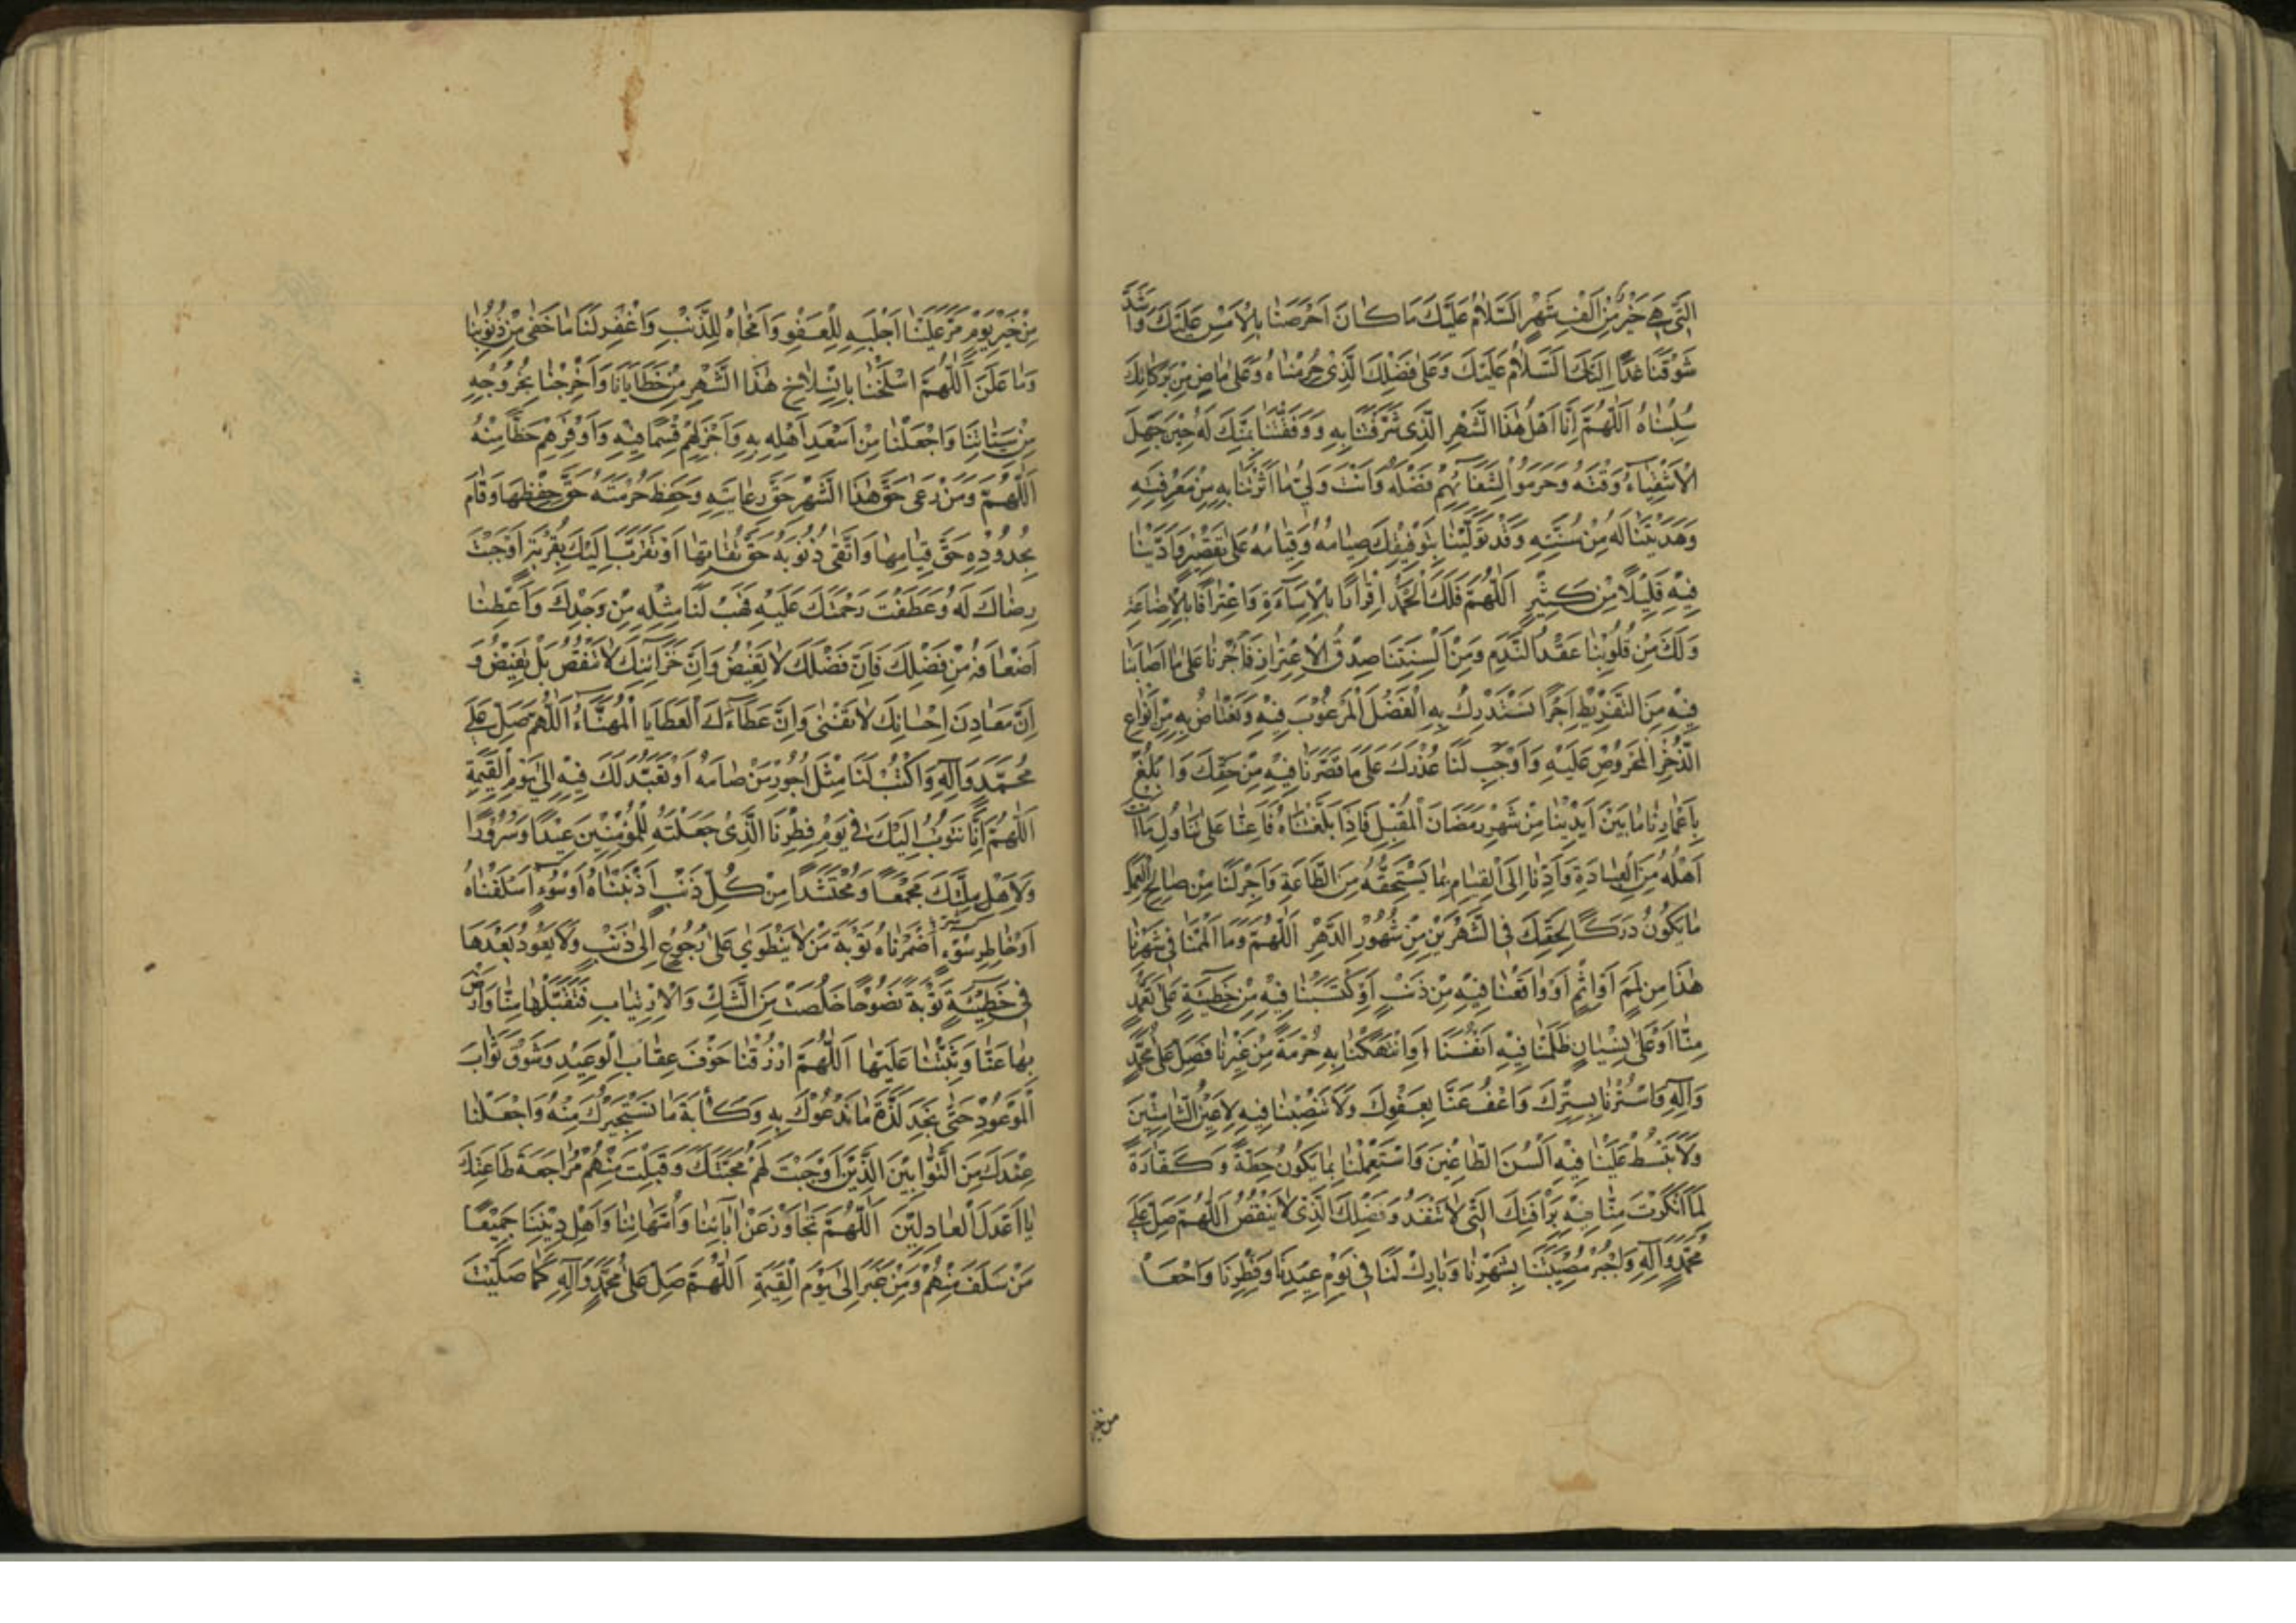 الَّتِي هِيَ خَيْرٌ مِنْ اَلْفِ شَهْرٍ اَلسَّلَامُ عَلَيْكَ مَا كَانَ اَحْرَصَنَا بِالْاَمْسِ عَلَيْكَ وَاَشَدَّ
شَوْقَنَا غَدًا اِلَيْكَ اَلسَّلَامُ عَلَيْكَ وَعَلٰى فَضْلِكَ الَّذِى حُرِمْنَاهُ وَعَلٰى مَاضٍ مِنْ بَرَكَاتِكَ
سُلِبْنَاهُ اَللّٰهُمَّ اِنَّا اَهْلُ هٰذَا الشَّهْرِ الَّذِى شَرَّفْتَنَا بِهِ وَوَفَّقْتَنَا بِمَنِّكَ لَهُ حِيْنَ جَهِلَ
الْاَشْقِيَاءُ وَقْتَهُ وَحُرِمُوْا لِشَقَائِهِمْ فَضْلَهُ وَاَنْتَ وَلِيُّ مَا اٰثَرْتَنَا بِهِ مِنْ مَعْرِفَتِهِ
وَهَدَيْتَنَا لَهُ مِنْ سُنَّتِهِ وَقَدْ تَوَلَّيْنَا بِتَوْفِيْقِكَ صِيَامَهُ وَقِيَامَهُ عَلٰى تَقْصِيْرٍ وَاَدَّيْنَا
فِيْهِ قَلِيْلًا مِنْ كَثِيْرٍ اَللّٰهُمَّ فَلَكَ الْحَمْدُ اِقْرَارًا بِالْاِسَاءَةِ وَاعْتِرَافًا بِالْاِضَاعَةِ
وَلَكَ مِنْ قُلُوْبِنَا عَقْدُ النَّدَمِ وَمِنْ اَلْسِنَتِنَا صِدْقُ الْاِعْتِذَارِ فَأْجُرْنَا عَلٰى مَا اَصَابَنَا
فِيْهِ مِنَ التَّفْرِيْطِ اَجْرًا نَسْتَدْرِكُ بِهِ الْفَضْلَ الْمَرْغُوْبَ فِيْهِ وَنَعْتَاضُ بِهِ مِنْ اَنْوَاعِ
الذُّخْرِ الْمَحْرُوْصِ عَلَيْهِ وَاَوْجِبْ لَنَا عُذْرَكَ عَلٰى مَا قَصَّرْنَا فِيْهِ مِنْ حَقِّكَ وَابْلُغْ
بِاَعْمَارِنَا مَا بَيْنَ اَيْدِيْنَا مِنْ شَهْرِ رَمَضَانَ الْمُقْبِلِ فَاِذَا بَلَّغْتَنَاهُ فَاَعِنَّا عَلٰى تَنَاوُلِ مَا اَنْتَ
اَهْلُهُ مِنَ الْعِبَادَةِ وَاَدِّنَا اِلَى الْقِيَامِ بِمَا يَسْتَحِقُّهُ مِنَ الطَّاعَةِ وَاَجْرِ لَنَا مِنْ صَالِحِ الْعَمَلِ
مَا يَكُوْنُ دَرَكًا لِحَقِّكَ فِى الشَّهْرَيْنِ مِنْ شُهُوْرِ الدَّهْرِ اَللّٰهُمَّ وَمَا اَلْمَمْنَا فِى شَهْرِنَا
هٰذَا مِنْ لَمَمٍ اَوْ اِثْمٍ اَوْ وَاقَعْنَا فِيْهِ مِنْ ذَنْبٍ اَوْ كْتَسَبْنَا فِيْهِ مِنْ خَطِيْئَةٍ عَلٰى تَعَمُّدٍ
مِنَّا اَوْ عَلٰى نِسْيَانٍ ظَلَمْنَا فِيْهِ اَنْفُسَنَا اَوِ انْتَهَكْنَا بِهِ حُرْمَةً مِنْ غَيْرِنَا فَصَلِّ عَلٰى مُحَمَّدٍ
وَاٰلِهِ وَاسْتُرْنَا بِسِتْرِكَ وَاعْفُ عَنَّا بِعَفْوِكَ وَلَا تَنْصِبْنَا فِيْهِ لِاَعْيُنِ الشَّامِتِيْنَ
وَلَا تَبْسُطْ عَلَيْنَا فِيْهِ اَلْسُنَ الطَّاغِيْنَ وَاسْتَعْمِلْنَا بِمَا يَكُوْنُ حِطَّةً وَكَفَّارَةً
لِمَا اَنْكَرْتَ مِنَّا فِيْهِ بِرَأْفَتِكَ الَّتِى لَا تَنْفَدُ وَفَضْلِكَ الَّذِى لَا يَنْقُصُ اَللّٰهُمَّ صَلِّ عَلٰى
مُحَمَّدٍ وَاٰلِهِ وَاجْبُرْ مُصِيْبَتَنَا بِشَهْرِنَا وَبَارِكْ لَنَا فِى يَوْمِ عِيْدِنَا وَفِطْرِنَا وَاجْعَلْهُ
من خير
مِنْ خَيْرِ يَوْمٍ مَرَّ عَلَيْنَا اَجْلَبِهِ لِلْعَفْوِ وَاَمْحَاهُ لِلذَّنْبِ وَاغْفِرْ لَنَا مَا خَفِىَ مِنْ ذُنُوْبِنَا
وَمَا عَلَنَ اَللّٰهُمَّ اسْلَخْنَا بِانْسِلَاخِ هٰذَا الشَّهْرِ مِنْ خَطَايَانَا وَاَخْرِجْنَا بِخُرُوْجِهِ
مِنْ سَيِّئَاتِنَا وَاجْعَلْنَا مِنْ اَسْعَدِ اَهْلِهِ بِهِ وَاَجْزَلِهِمْ قِسْمًا فِيْهِ وَاَوْفَرِهِمْ حَظًّا مِنْهُ
اَللّٰهُمَّ وَمَنْ رَعٰى حَقَّ هٰذَا الشَّهْرِ حَقَّ رِعَايَتِهِ وَحَفِظَ حُرْمَتَهُ حَقَّ حِفْظِهَا وَقَامَ
بِحُدُوْدِهِ حَقَّ قِيَامِهَا وَاتَّقٰى ذُنُوْبَهُ حَقَّ تُقَاتِهَا اَوْ تَقَرَّبَ اِلَيْكَ بِقُرْبَةٍ اَوْجَبَتْ
رِضَاكَ لَهُ وَعَطَفَتْ رَحْمَتَكَ عَلَيْهِ فَهَبْ لَنَا مِثْلَهُ مِنْ وَجْدِكَ وَاَعْطِنَا
اَضْعَافَهُ مِنْ فَضْلِكَ فَاِنَّ فَضْلَكَ لَا يَغِيْضُ وَاِنَّ خَزَائِنَكَ لَا تَنْقُصُ بَلْ تَفِيْضُ وَ
اِنَّ مَعَادِنَ اِحْسَانِكَ لَا تَفْنٰى وَاِنَّ عَطَاءَكَ لَلْعَطَايَا الْمُهَنَّاءُ اَللّٰهُمَّ صَلِّ عَلٰى
مُحَمَّدٍ وَاٰلِهِ وَاكْتُبْ لَنَا مِثْلَ اُجُوْرِ مَنْ صَامَهُ اَوْ تَعَبَّدَ لَكَ فِيْهِ اِلٰى يَوْمِ الْقِيٰمَةِ
اَللّٰهُمَّ اِنَّا نَتُوْبُ اِلَيْكَ فِى يَوْمِ فِطْرِنَا الَّذِى جَعَلْتَهُ لِلْمُؤْمِنِيْنَ عِيْدًا وَسُرُوْرًا
وَلِاَهْلِ مِلَّتِكَ مَجْمَعًا وَمُحْتَشَدًا مِنْ كُلِّ ذَنْبٍ اَذْنَبْنَاهُ اَوْ سُوْءٍ اَسْلَفْنَاهُ
اَوْ خَاطِرِ سُوْءٍ اَضْمَرْنَاهُ تَوْبَةَ مَنْ لَا يَنْطَوِى عَلٰى رُجُوْعٍ اِلٰى ذَنْبٍ وَلَا يَعُوْدُ بَعْدَهَا
فِى خَطِيْئَةٍ تَوْبَةً نَصُوْحًا خَلَصَتْ مِنَ الشَّكِّ وَالْاِرْتِيَابِ فَتَقَبَّلْهَا مِنَّا وَارْضَ
بِهَا عَنَّا وَثَبِّتْنَا عَلَيْهَا اَللّٰهُمَّ ارْزُقْنَا خَوْفَ عِقَابِ الْوَعِيْدِ وَشَوْقَ ثَوَابِ
الْمَوْعُوْدِ حَتّٰى نَجِدَ لَذَّةَ مَا نَدْعُوْكَ بِهِ وَكَاٰبَةَ مَا نَسْتَجِيْرُكَ مِنْهُ وَاجْعَلْنَا
عِنْدَكَ مِنَ التَّوَّابِيْنَ الَّذِيْنَ اَوْجَبْتَ لَهُمْ مَحَبَّتَكَ وَقَبِلْتَ مِنْهُمْ مُرَاجَعَةَ طَاعَتِكَ
يَا اَعْدَلَ الْعَادِلِيْنَ اَللّٰهُمَّ تَجَاوَزْ عَنْ اٰبَائِنَا وَاُمَّهَاتِنَا وَاَهْلِ دِيْنِنَا جَمِيْعًا
مَنْ سَلَفَ مِنْهُمْ وَمَنْ غَبَرَ اِلٰى يَوْمِ الْقِيٰمَةِ اَللّٰهُمَّ صَلِّ عَلٰى مُحَمَّدٍ وَاٰلِهِ كَمَا صَلَّيْتَ